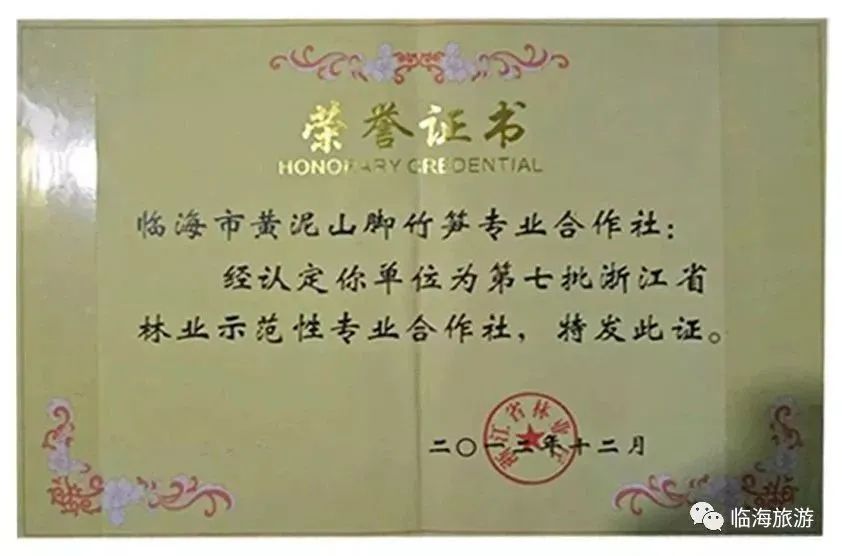 荣誉证书
HONORARY CREDENTIAL
临海市黄泥山脚竹笋专业合作社：
经认定你单位为第七批浙江省
林业示范性专业合作社，特发此证。
浙江省林业厅
二〇一二年十二月
临海旅游